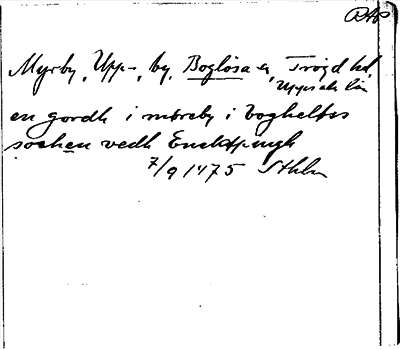 RAP
Myrby, Upp-, by, Boglösa sn, Trögd hd,
Uppsala län
en gordh i möreby i boghelöss
sochen vedh Eneköpungh
7/9 1475 Sthlm